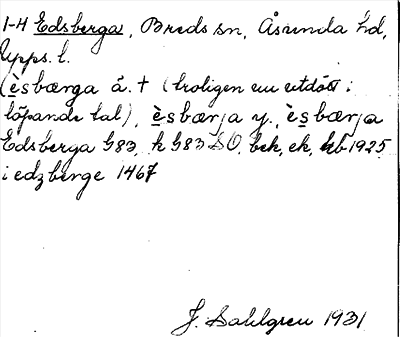 1-4 Edsberga, Breds sn, Åsunda hd,
Upps. l.
(èsbærga å. † (troligen nu utdött i
löpande tal), èsbærja y., èsbærja
Edsberga G83, h G83 SO, bek, ek, hb 1925
i edzberge 1467
J. Sahlgren 1931